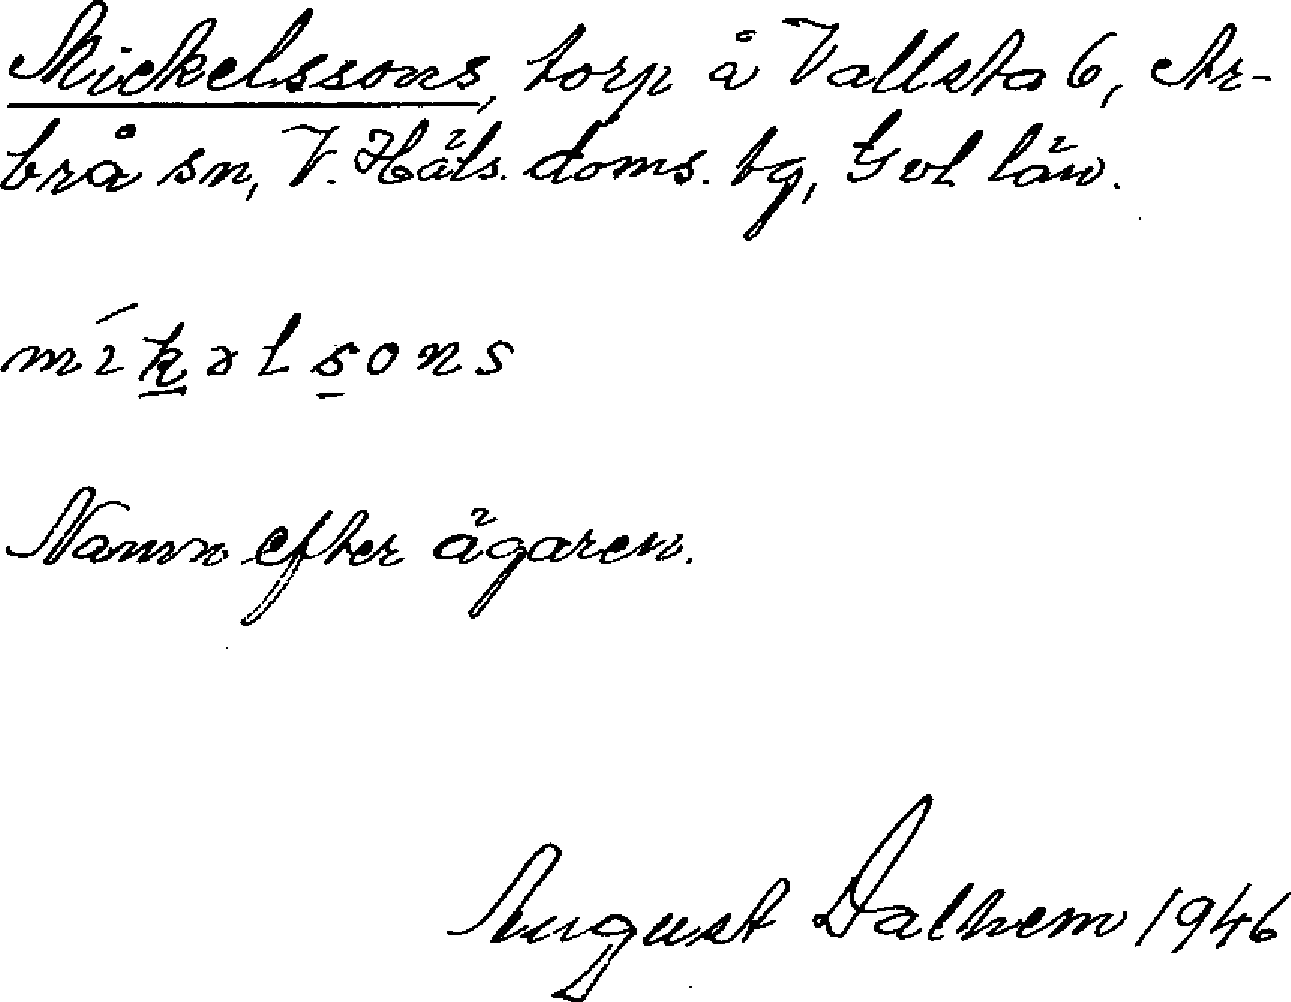 Mickelssons, torp å Vallsta 6, Ar-
brå sn, V. Häls. doms. tg, Gvl län.
míkəlsons
Namn efter ägaren.
August Dalhem 1946